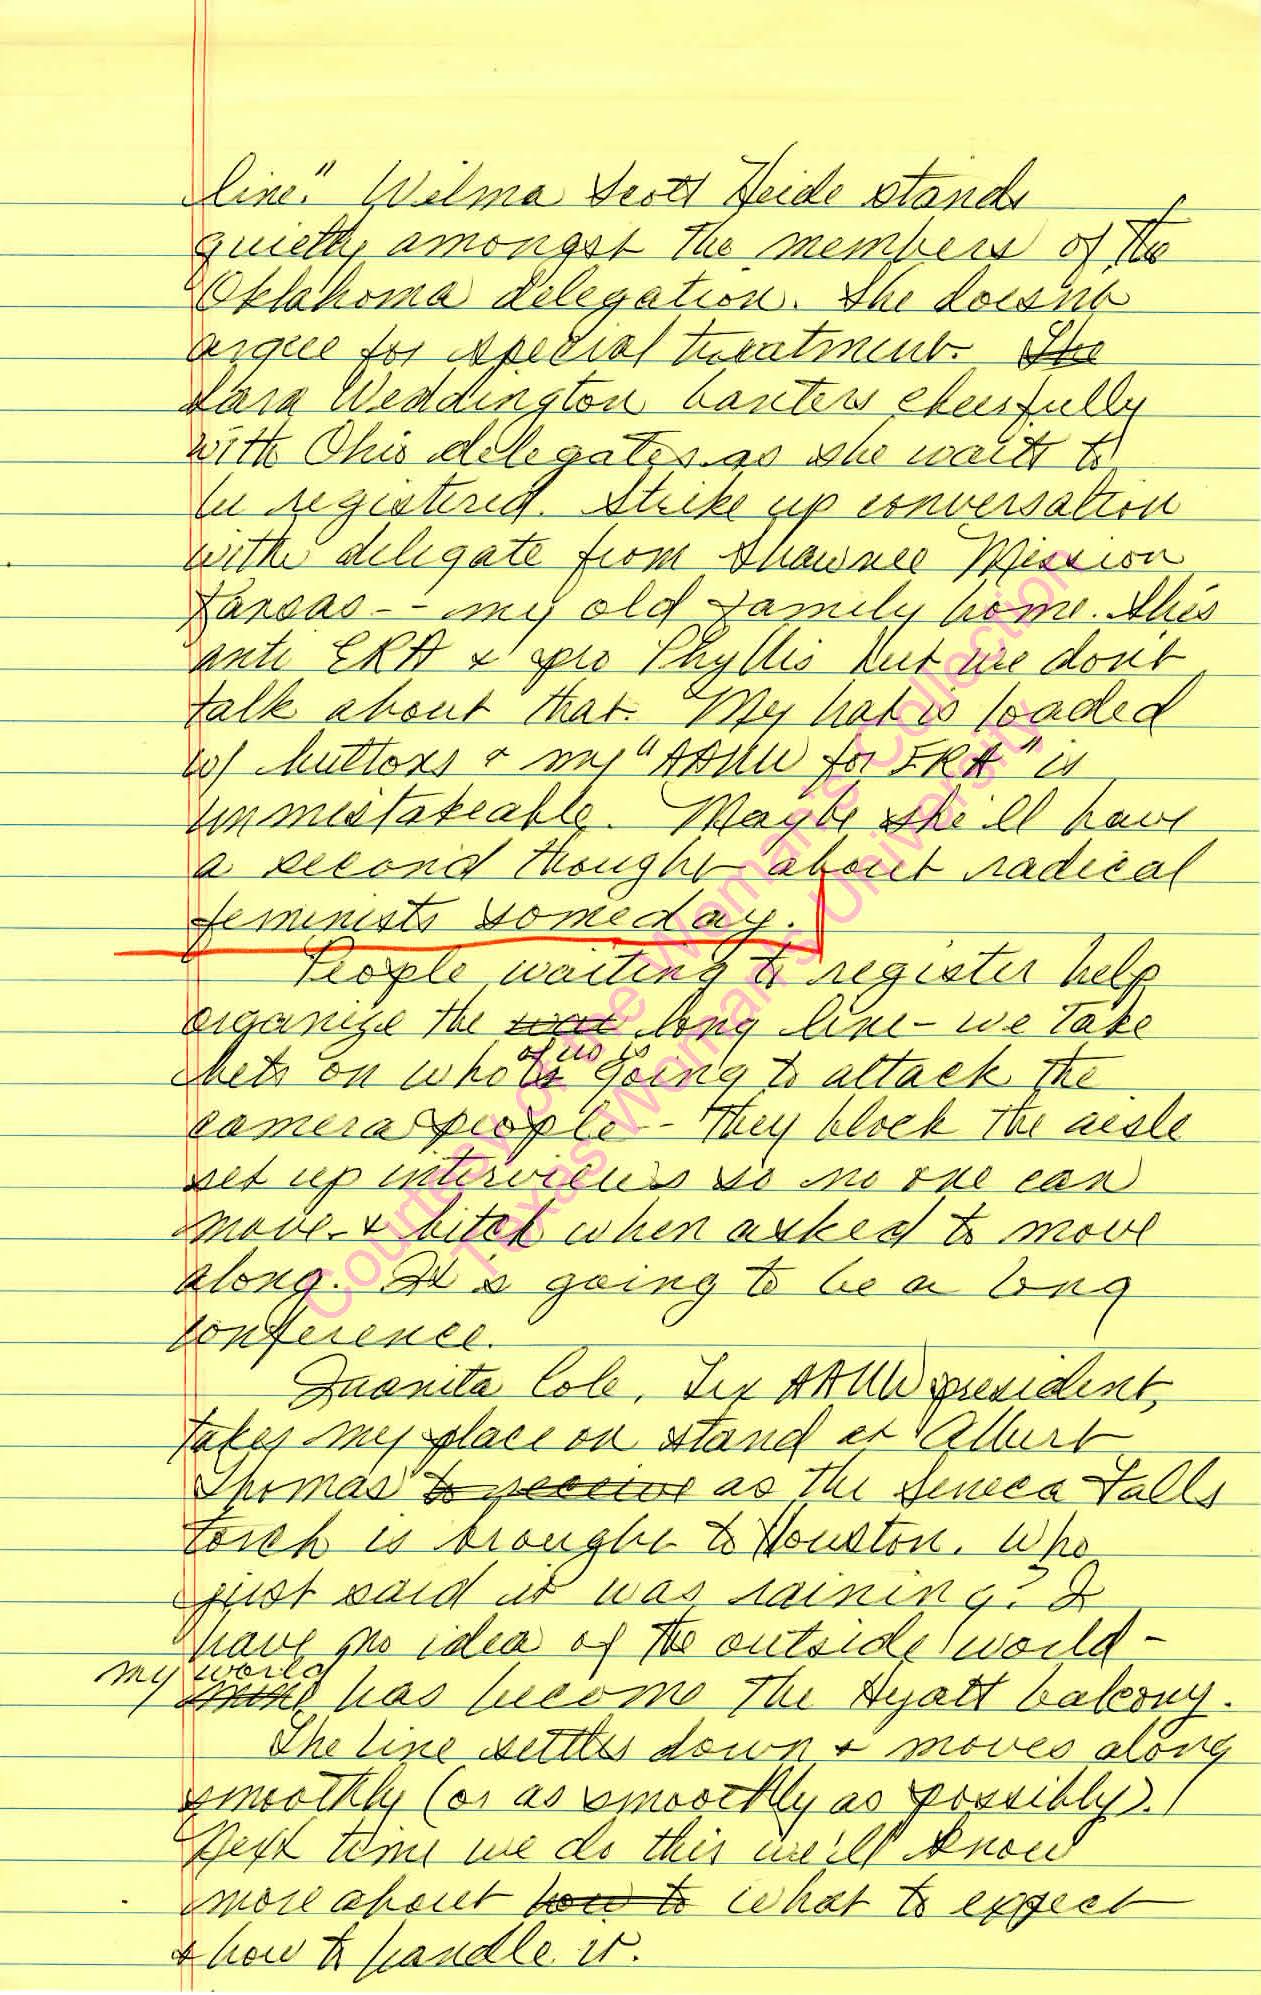 line." Wilma Scott Heide stands
quietly amongst the members of the
Oklahoma delegation. She doesn't
argue for special treatment. The
Sara Weddington banters cheerfully
with Ohio delegates as she waits to
be registered. Strike up conversation
with delegate from Shawnee Mission
Kansas -- my old family home. She's
anti ERA & pro Phyllis but we don't
talk about that. My hat is loaded
w/ buttons & my "AAUW for ERA" is
unmistakeable. Maybe she'll have
a second thought about radical
feminists someday.
People waiting to register help
organize the long line - we take
of us is
bets on who going to attack the
camera people - They block the aisle
set up interviews so no one can
move - & bitch when asked to move
along. It's going to be a long
conference.
Juanita Cole, Tex AAUW president,
takes my place on stand at Albert
Thomas to receive as the Seneca Falls
torch is brought to Houston. Who
just said it was raining? I
have no idea of the outside world -
my world
mine has become the Hyatt balcony.
The line settles down & moves along
smoothly (or as smoothly as possibly).
Next time we do this we'll know
more about how to what to expect
& how to handle it.
Courtesy of the Woman's Collection
Texas Woman's University